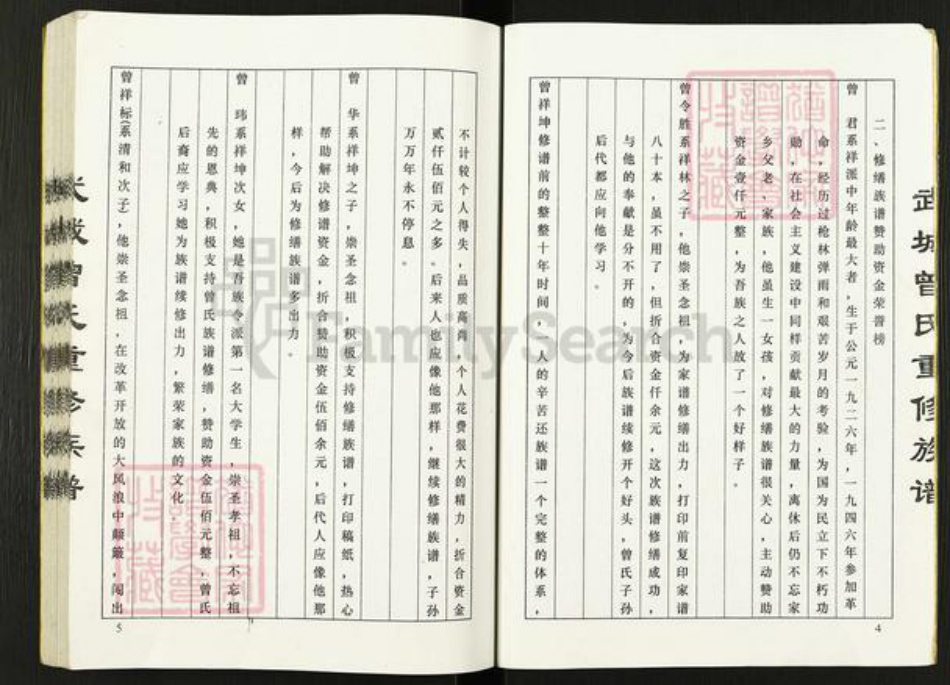 武城曾氏重修族谱
二、修缮族谱赞助资金荣誉榜
曾　君系祥派中年龄最大者，生于公元一九二六年，一九四六年参加革
命，经历过枪林弹雨和艰苦岁月的考验，为国为民立下不朽功
勋，在社会主义建设中同样贡献最大的力量，离休后仍不忘家
乡父老、家族，他虽生一女孩，对修缮族谱很关心，主动赞助
资金壹仟元整，为吾族之人放了一个好样子。
曾令胜系祥林之子，他崇圣念祖，为家谱修缮出力，打印前复印家谱
八十本，虽不用了，但折合资金仟余元，这次族谱修缮成功，
与他的奉献是分不开的，为今后族谱续修开个好头，曾氏子孙
后代都应向他学习。
曾祥坤修谱前的整整十年时间，一人的辛苦还族谱一个完整的体系，
4
不计较个人得失，品质高尚，个人花费很大的精力，折合资金
贰仟伍佰元之多。后来人也应像他那样，继续修缮族谱，子孙
万万年永不停息。
曾　华系祥坤之子，崇圣念祖，积极支持修缮族谱，打印稿纸，热心
帮助解决修谱资金，折合赞助资金伍佰余元，后代人应像他那
样，今后为修缮族谱多出力。
曾　玮系祥坤次女，她是吾族令派第一名大学生，崇圣孝祖，不忘祖
先的恩典，积极支持曾氏族谱修缮，赞助资金伍佰元整，曾氏
后裔应学习她为族谱续修出力，繁荣家族的文化。
曾祥标(系清和次子)，他崇圣念祖，在改革开放的大风浪中颠簸，闯出
5
武城曾氏重修族谱
FamilySearch